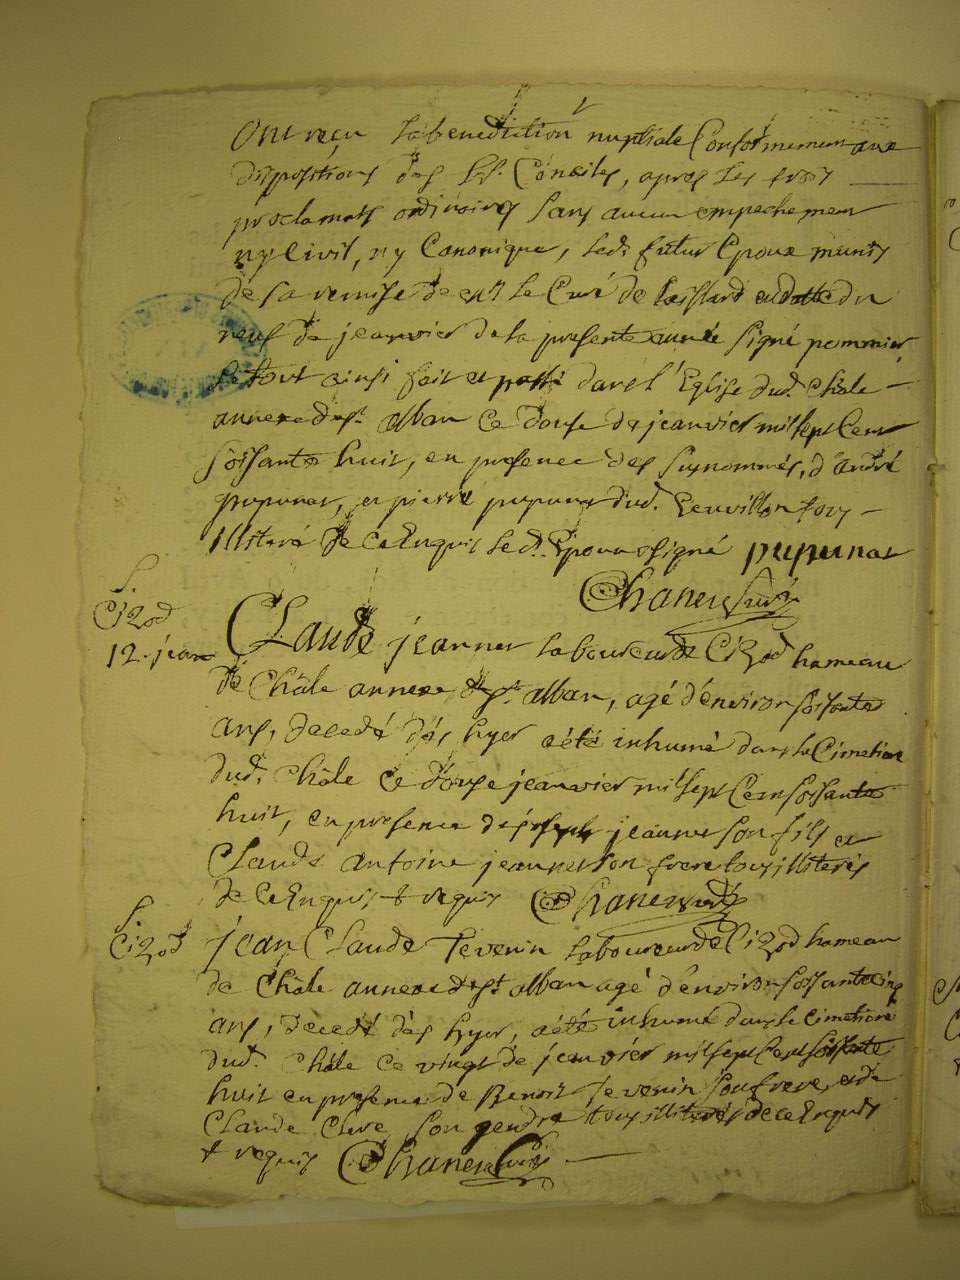 ont reçu la benediction nuptiale Conformement aux
dispositions des Sts. Conciles, apres les trois
proclamats ordinaires sans aucun empechement
ny Civil, ny Canonique, led. futur Epoux munis
de sa remise de Mr le Curé de en datte du
neuf de jeanvier de la presente année signé pommier,
le tout ainsi fait et passé dans l'Eglise dud. Châle
annexe de st. alban ce douse de jeanvier mil sept Cent
soissante huit, en presence des susnommés, d'andré
pupunat, et pierre pupunat dud. tous
illiteré de ce Enquis led. Epoux signé pupunat
S.
Cizod
12. jean
Claude jeannet laboureur de Cizod hameau
de Châle annexe de st alban, agé d'environ soisante
ans, decedé dés hyer aété inhumé dans le Cimetiere
dud. Châle ce douse jeanvier mil sept Cent soissante
huit, en presence de joseph jeannet son fils et
Claude antoine jeannet son frere tous illiterés
de ce Enquis & requis
S.
Cizod
jean Claude Tevenin laboureur de Cizod hameau
de Châle annexe de st alban agé d'environ soissante cinq
ans, decedé dés hyer, aété inhumé dans le Cimetiere
dud. Châle ce vingt de jeanvier mil sept Cent soissante
huit en presence de Benoit Tevenin son frere, et de
Claude son gendre tous illiterés de ce Enquis
& requis